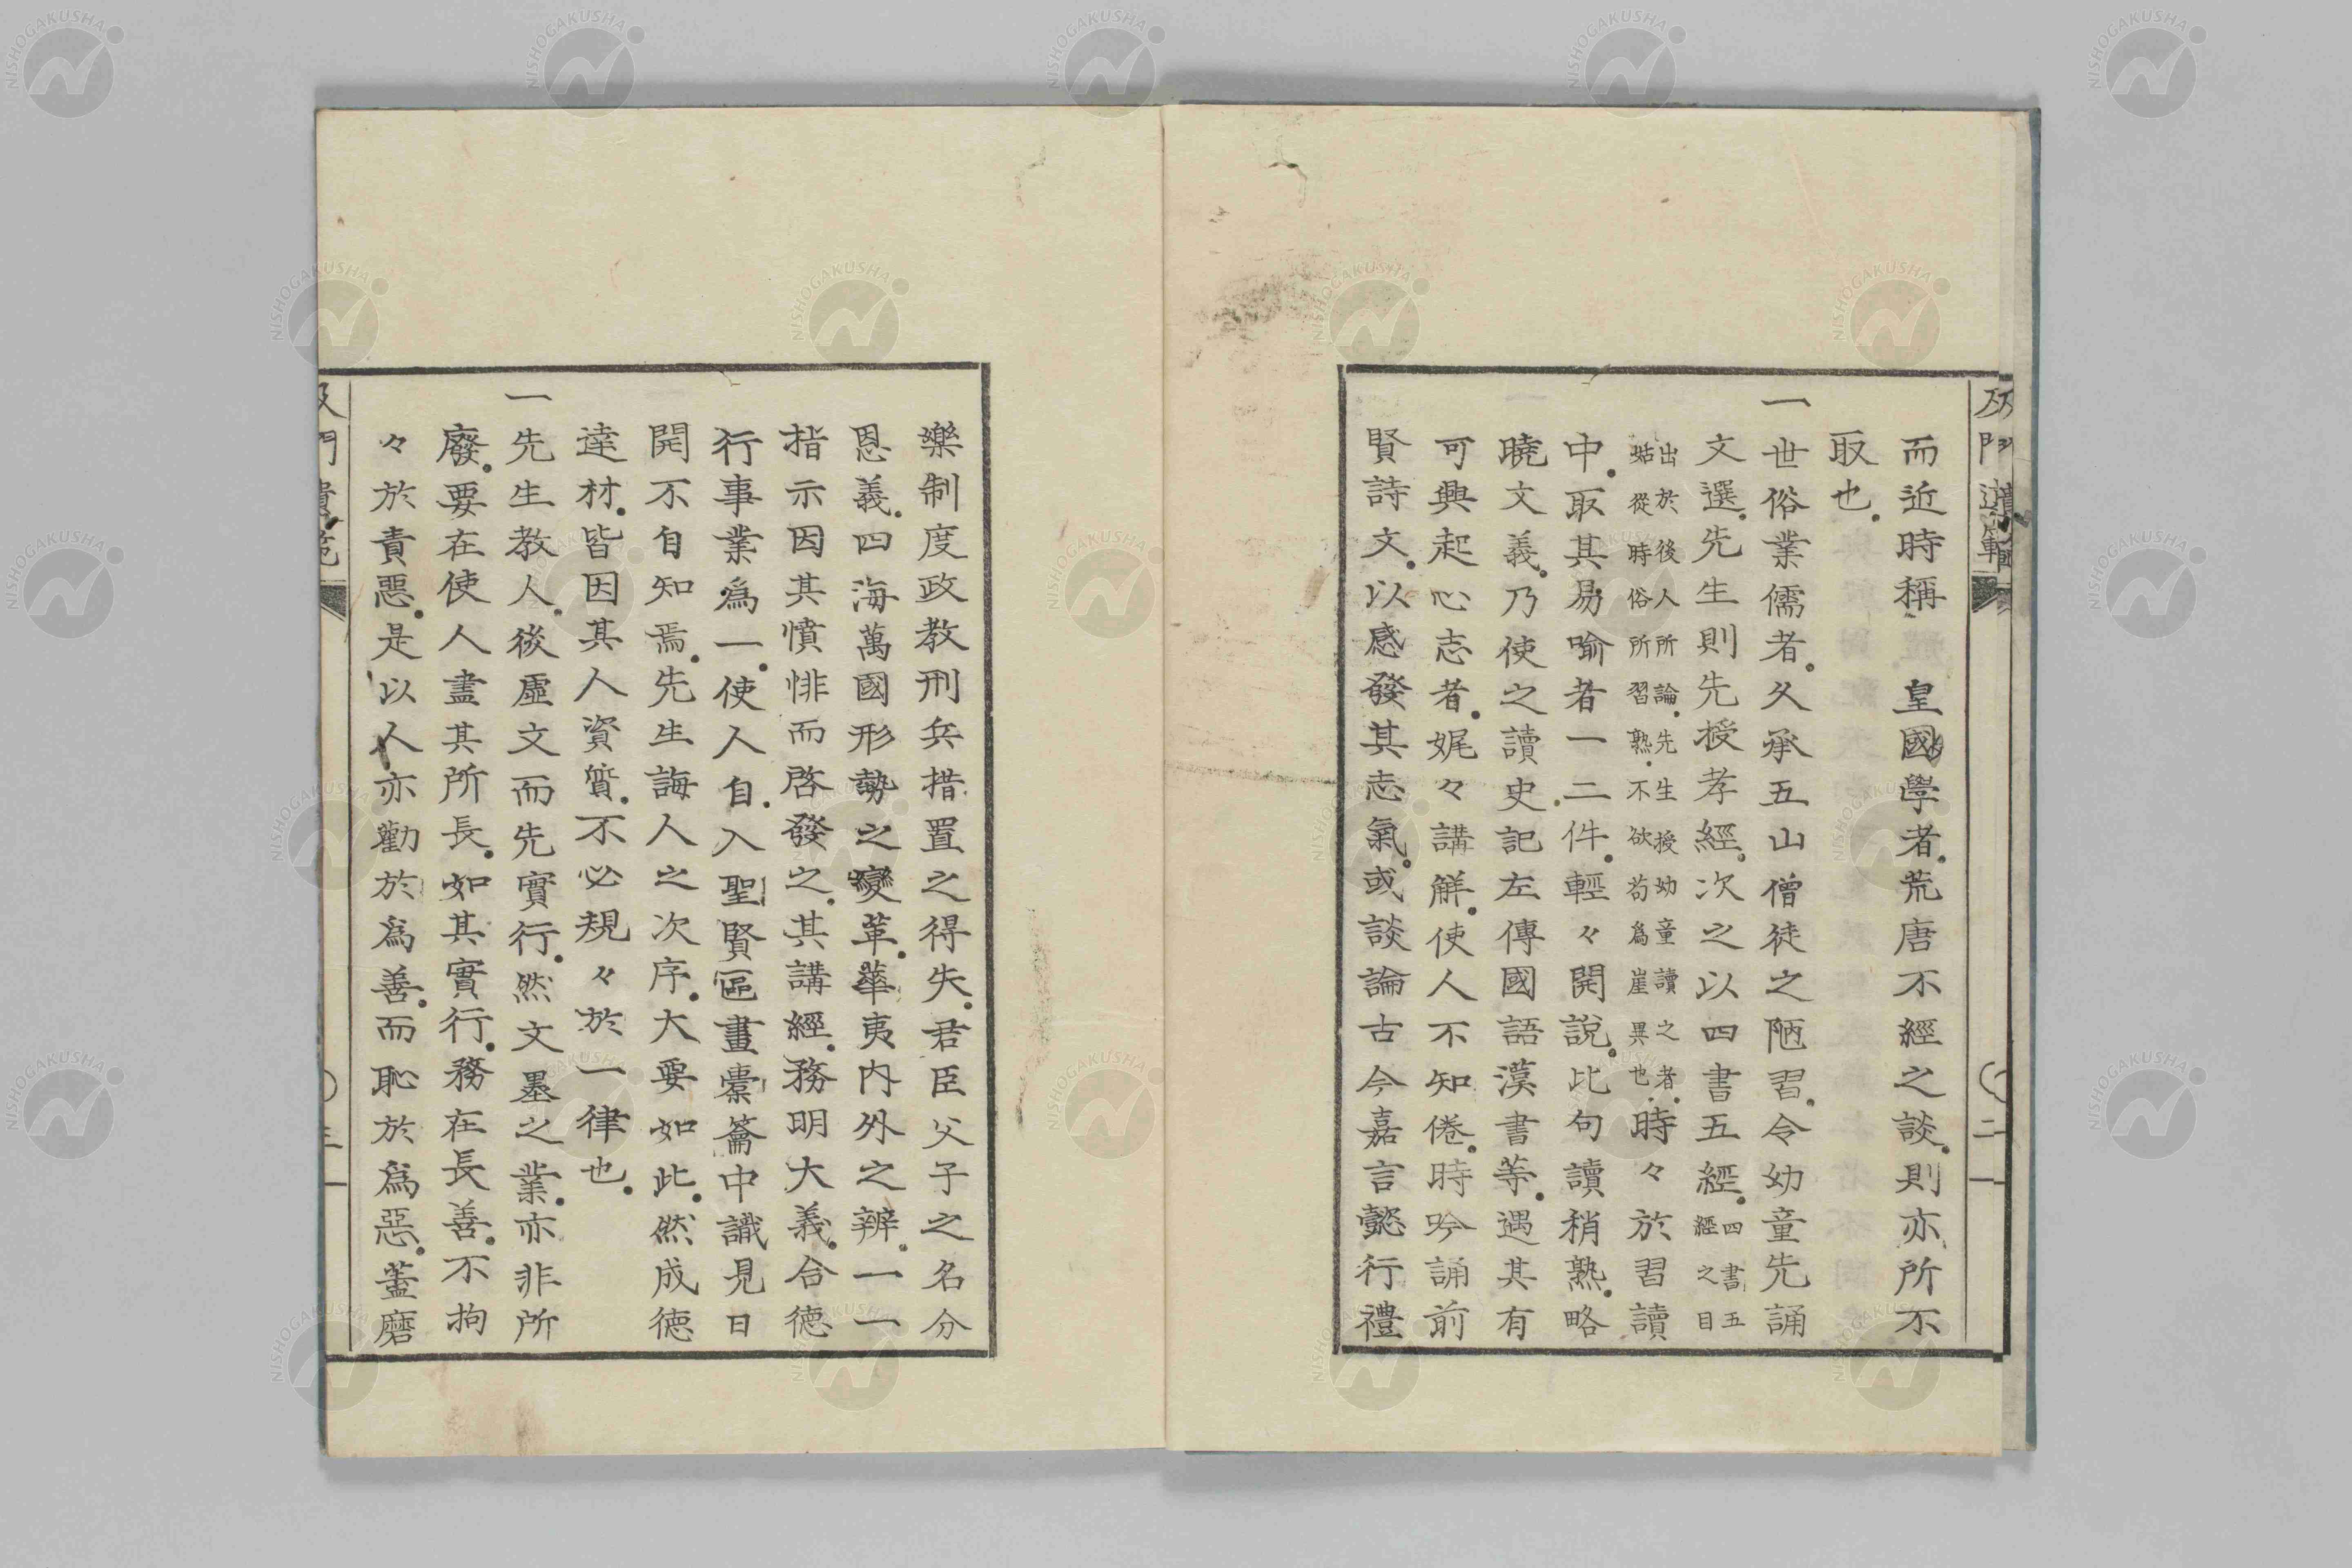 而近時稱　皇國學者。荒唐不經之談。則亦所不
取也。
一世俗業儒者。久承五山僧徒之陋習。令幼童先誦
文選。先生則先授孝經。次之以四書五經。四書五經之目
出於後人所論。先生授幼童讀之者。姑從時俗所習熟。不欲苟爲崖異也。時々於習讀
中。取其易喻者一二件。輕々開說。比句讀稍熟。略
曉文義。乃使之讀史記左傳國語漢書等。遇其有
可興起心志者。娓々講解。使人不知倦。時吟誦前
賢詩文。以感發其志氣。或談論古今嘉言懿行禮
樂制度政教刑兵措置之得失。君臣父子之名分
恩義。四海萬國形勢之變革。華夷内外之辨。一一
指示因其憤悱而啓發之。其講經。務明大義。合德
行事業爲一。使人自。入聖賢區畫橐籥中識見日
開不自知焉。先生誨人之次序。大要如此。然成德
達材。皆因其人資質。不必規々於一律也。
一先生教人。後虛文而先實行。然文墨之業。亦非所
廢。要在使人盡其所長。如其實行。務在長善。不拘
々於責惡。是以人亦勸於爲善。而恥於爲惡。蓋磨
二
NISHOGAKUSHA